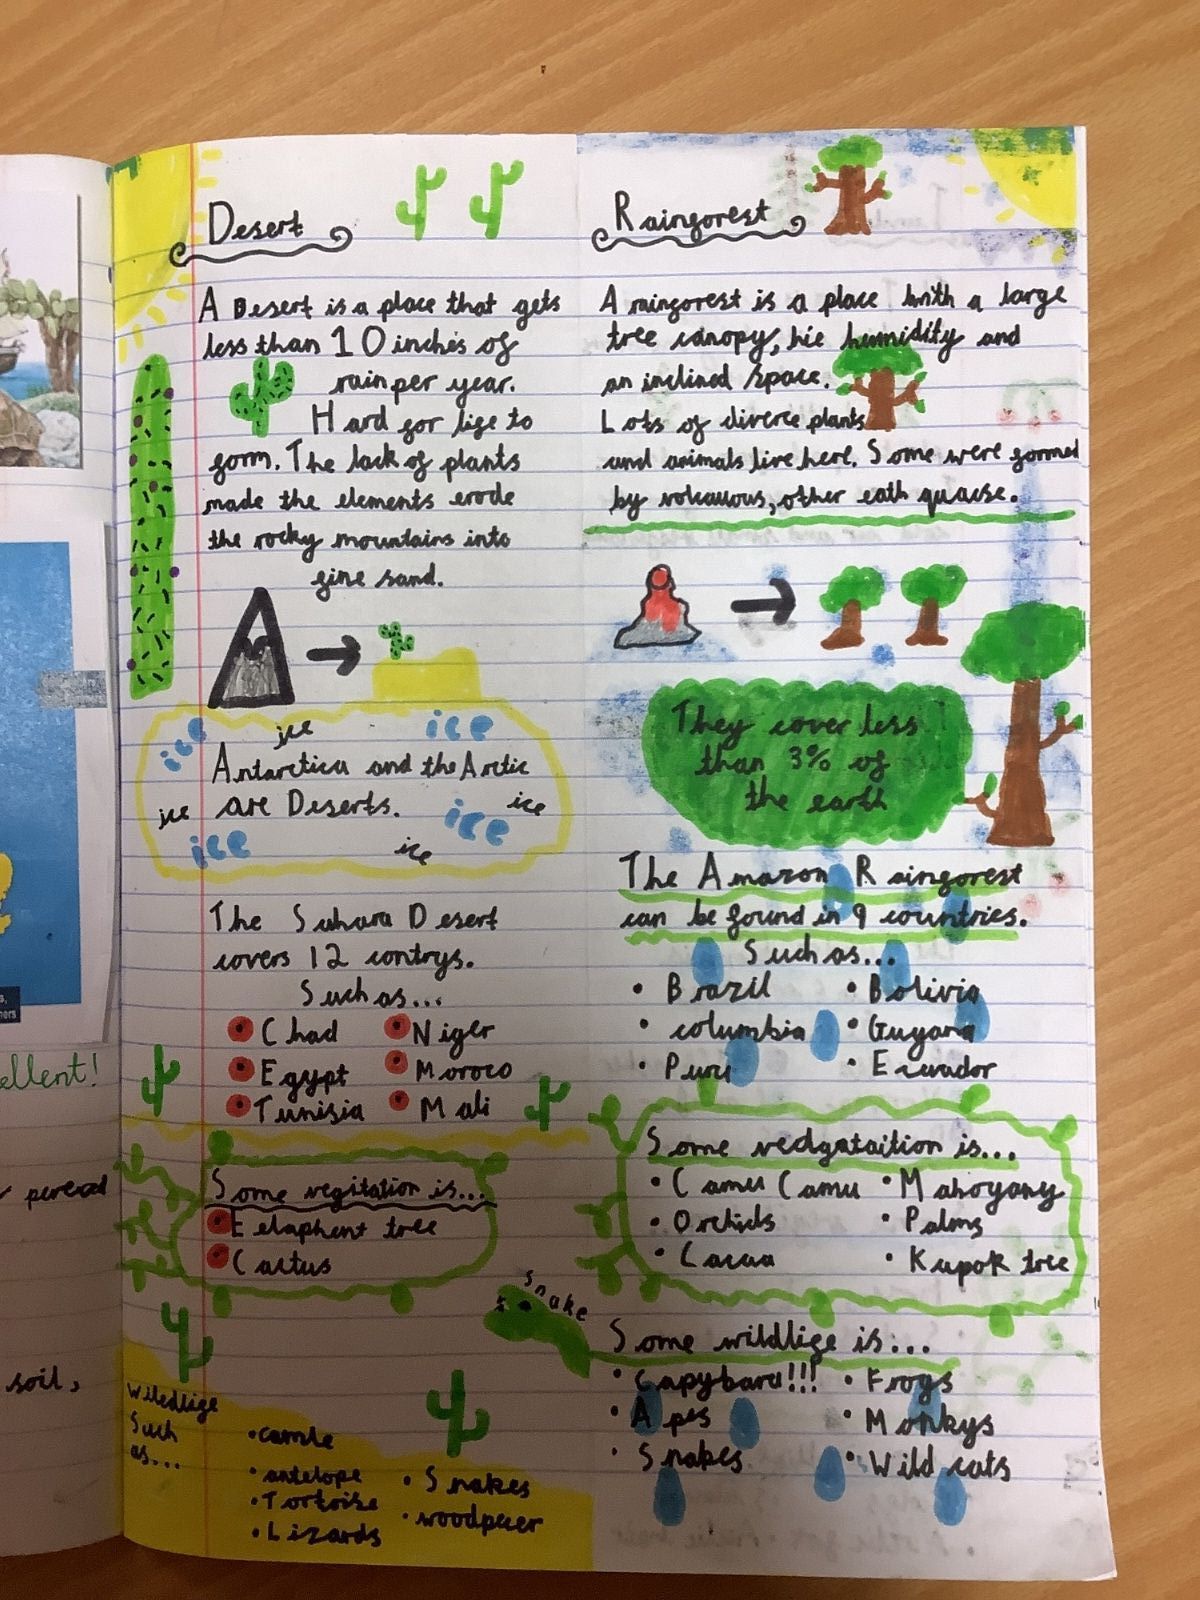 Desert
A Desert is a place that gets
less than 10 inches of
rain per year.
Hard for life to
form. The lack of plants
made the elements erode
the rocky mountains into
fine sand.
ice ice ice
Antarctica and the Arctic
ice are Deserts. ice ice
ice ice
The Sahara Desert
covers 12 contrys.
Such as...
Chad
Niger
Egypt
Moroco
Tunisia
Mali
Some vegitation is...
Elaphent tree
Cactus
Wiledlife
Such
as...
camle
antelope
Tortoise
Lizards
Snakes
woodpecer
Rainforest
A rainforest is a place with a large
tree canopy, hie humidity and
an inclined space.
Lots of diverce plants
and animals live here. Some were formed
by volcanous, other eath quacse.
They cover less
than 3% of
the earth
The Amazon Rainforest
can be found in 9 countries.
Such as...
Brazil
Bolivia
columbia
Guyana
Peru
Ecuador
Some vedgataition is...
Camu Camu
Mahogany
Orchids
Palms
Cacao
Kapok tree
snake
Some wildlife is...
Capybara!!!
Frogs
Apes
Monkys
Snakes
Wild cats
ellent!
pereod
soil,